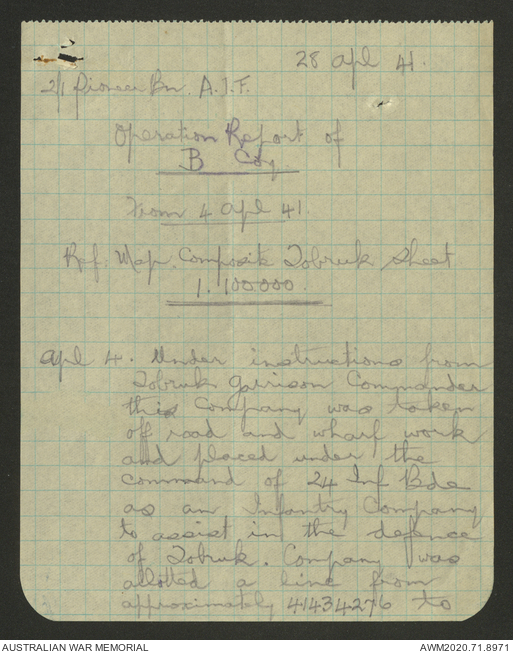 28 Apl 41.
2/1 Pioneer Bn. A.I.F.
Operation Report of
B Coy
From 4 Apl 41.
Ref. Map. Composite Tobruk Sheet
1. 100.000.
Apl 4. Under instructions from
Tobruk Garrison Commander
this Company was taken
off road and wharf work
and placed under the
command of 24 Inf Bde
as an Infantry Company
to assist in the defence
of Tobruk. Company was
allotted a line from
approximately 41434276 to
AUSTRALIAN WAR MEMORIAL
AWM2020.71.8971